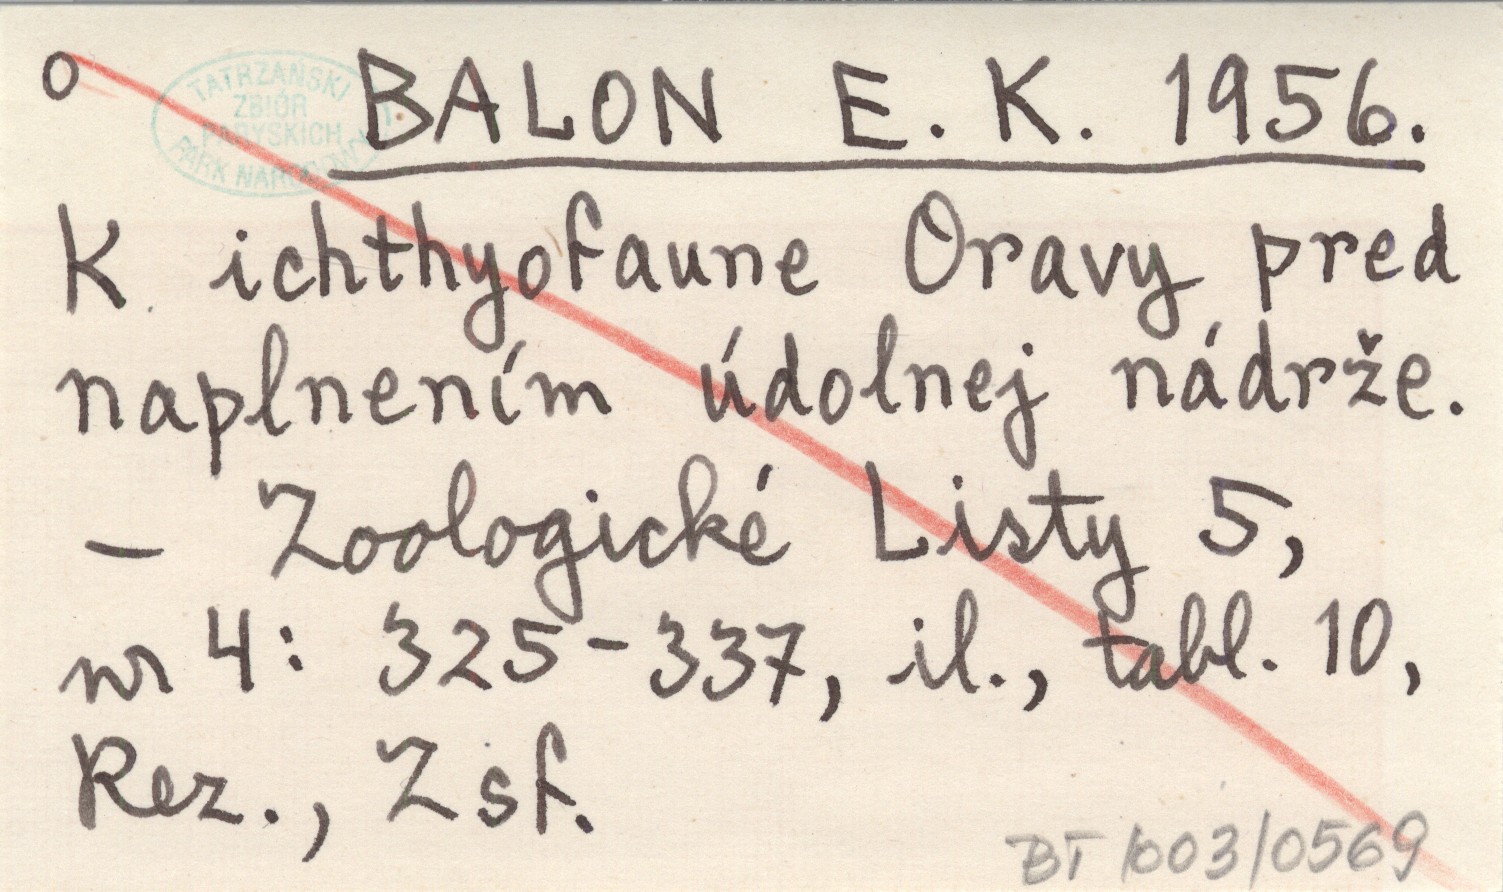 o
TATRZAŃSKI
ZBIÓR
PARYSKICH
PARK NARODOWY
BALON E. K. 1956.
K ichthyofaune Oravy pred
naplnením údolnej nádrže.
– Zoologické Listy 5,
nr 4: 325-337, il., tabl. 10,
Rez., Zsf.
BT/003/0569